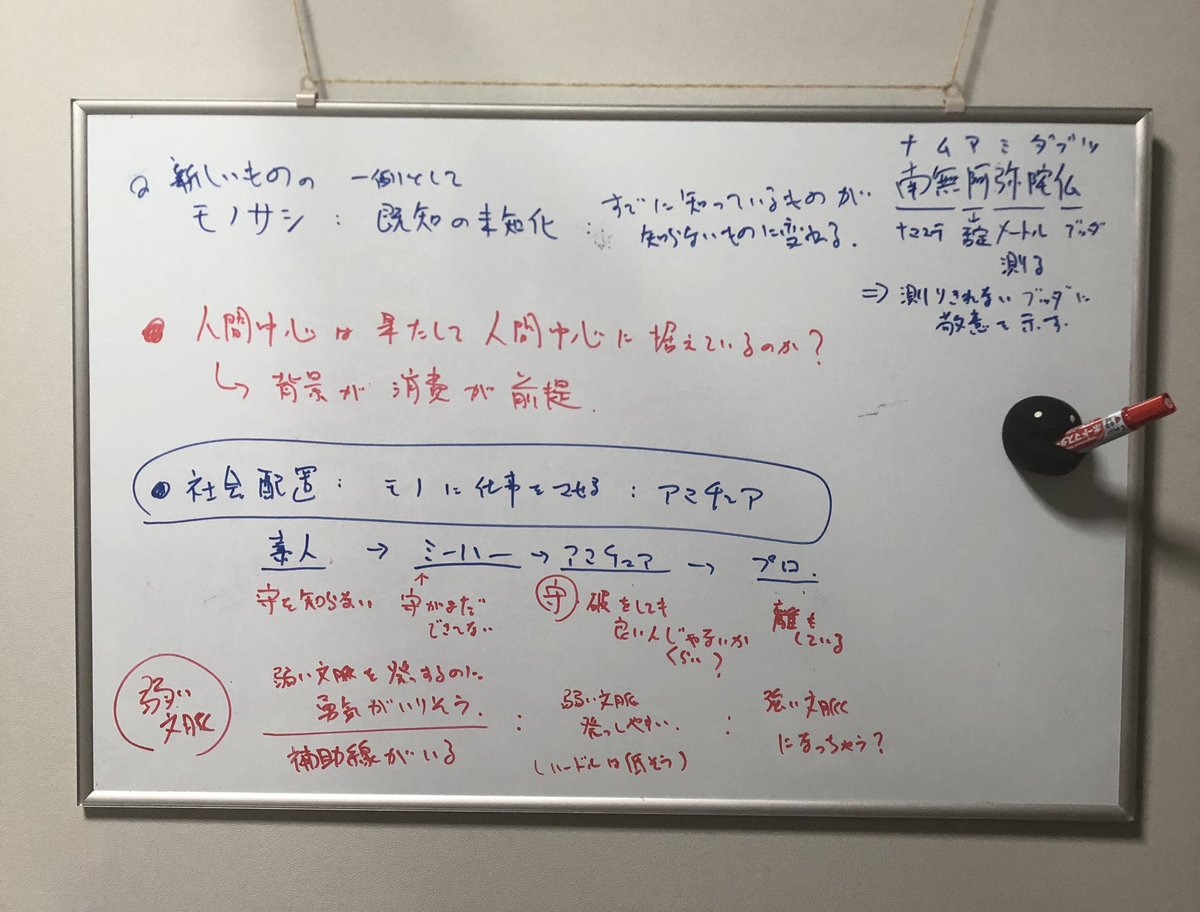 新しいものの 一例として
モノサシ : 既知の未知化 : すでに知っているものが
知らないものに変わる.
ナムアミダブツ
南無阿弥陀仏
ナマステ 否定 メートル ブッダ
測る
⇒ 測りきれない ブッダに
敬意を示す.
● 人間中心は果たして人間中心に据えているのか?
↳ 背景が 消費が 前提.
● 社会配置 : モノに仕事をさせる : アマチュア
素人 → ミーハー → アマチュア → プロ.
守を知らない
↑
守がまだ
できてない
守 破をしても
良い人じゃないか
くらい?
離も
している
弱い
文脈
弱い文脈を発するのに
勇気がいりそう.
補助線がいる
: 弱い文脈
発っしやすい.
(ハードルは低そう)
: 強い文脈
になっちゃう?
ボードマスター